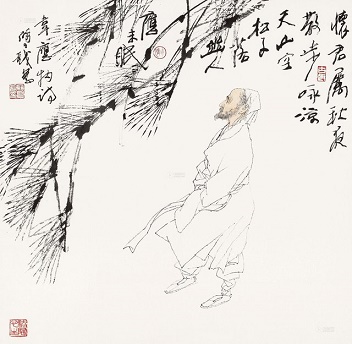 懷君屬秋夜
散步咏涼
天山空
松子
落
幽人
應未眠
韋應物詩